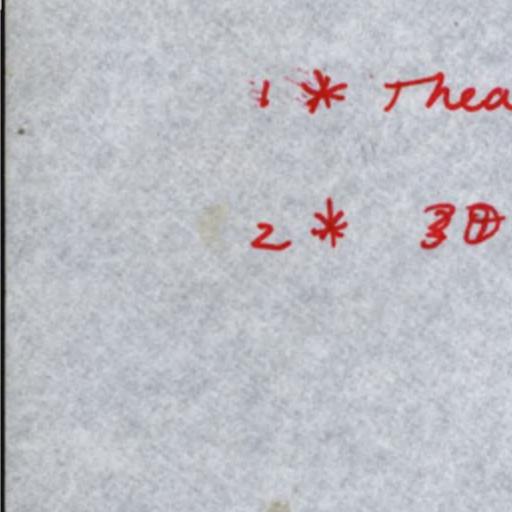 1 * Thea
2 * 3